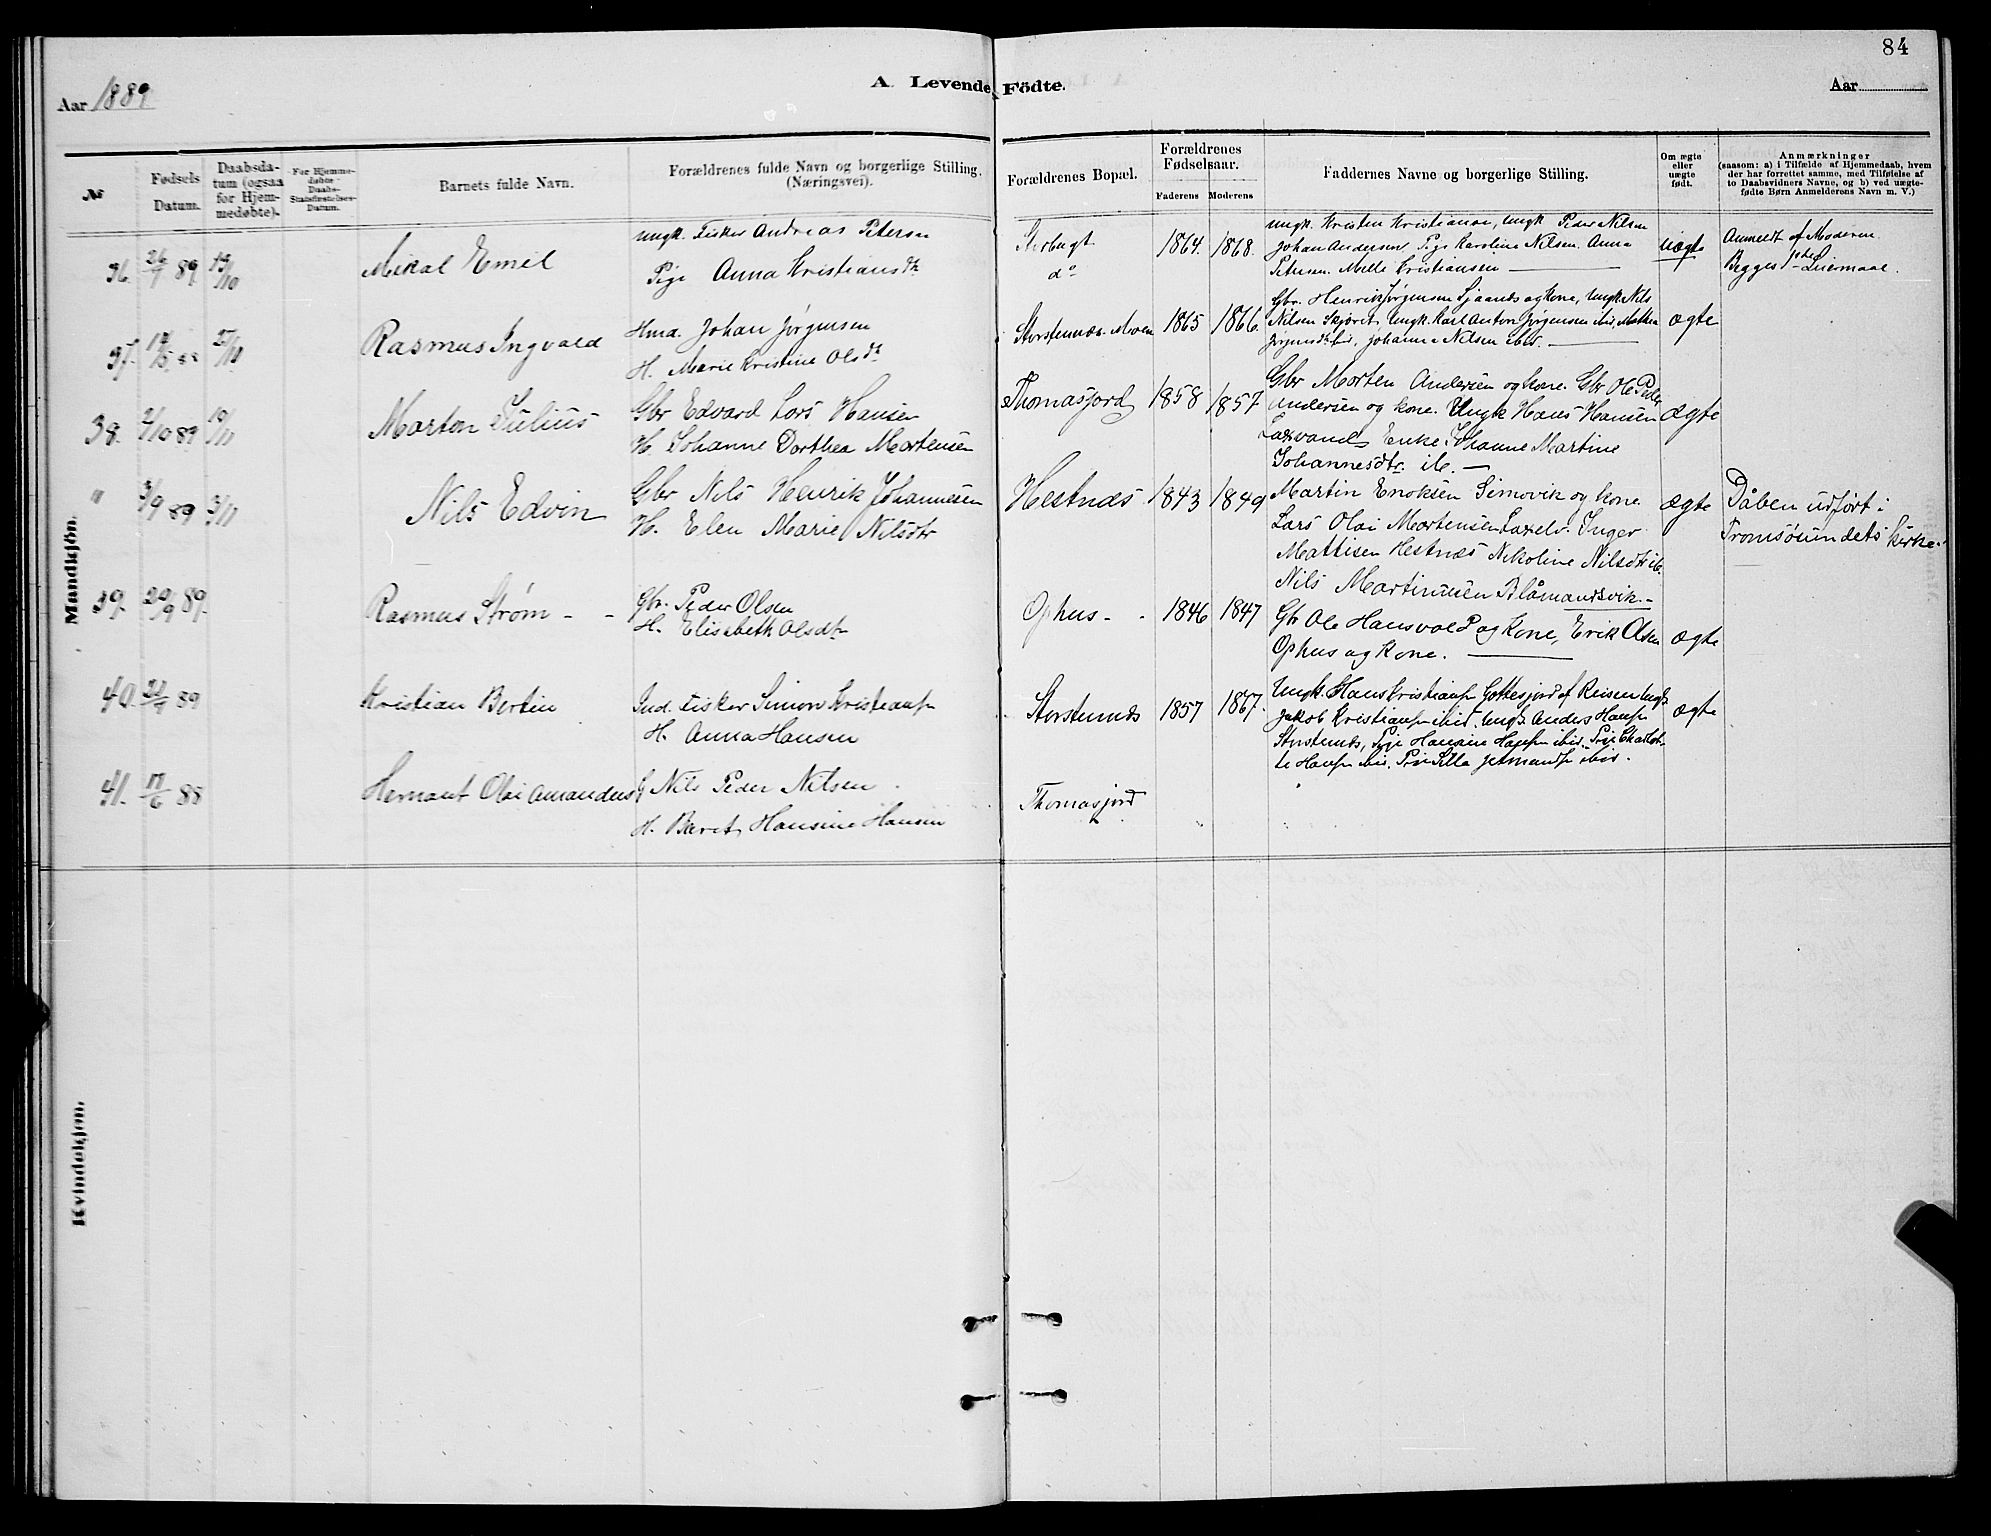 84
Aar 1889
A. Levende Födte.
Aar
№
Fødsels Datum.
Daabsdatum (ogsaa for Hjemmedøbte).
For Hjemmedøbte Daabs-Stadfæstelses-Datum.
Barnets fulde Navn.
Forældrenes fulde Navn og borgerlige Stilling. (Næringsvei).
Forældrenes Bopæl.
Forældrenes Fødselsaar.
Faderens Moderens
Faddernes Navne og borgerlige Stilling.
Om ægte eller uægte født.
Anmærkninger
(saasom: a) i Tilfælde af Hjemmedaab, hvem
der har forrettet samme, med Tilføielse af
to Daabsvidners Navne, og b) ved uægte-
fødte Børn Anmelderens Navn m. V.)
Mandkjön.
36. 26/7 89. 13/10 Mikal Emil
Ungk. Fisker Andreas Petersen
Pige Anna Kristiansdtr
d° 1864. 1868.
Ungk. Kristen Kristiansen, Ungk Peder Nilsen
Johan Andersen Pige Karoline Nilsen. Anna
Petersen. Melle Kristiansen
uægte
Anmeldt af Moderen
Begges 1ste Leiermaal.
37. 27/10 Rasmus Ingvald
Hmd. Johan Jørgensen
H. Marie Kristine Olsdtr
Storstennæs. Moen 1865 1866.
Gbr. Henrik Jørgensen og Kone, Ungk Nils
Nilsen Skjøret, Ungk. Karl Anton Jørgensen ibid, Mathea
Jørgensdtr ibid, Johanna Nilsen ibid.
ægte
38. 2/10 89 10/11 Morten Julius
Gbr Edvard Lars Hansen
H. Johanne Dorthea Mortensen
Thomasjord 1858 1857
Gbr Morten Andersen og Kone. Gbr Ole Peder
Andersen og Kone. Ungk Hans Hansen
Laxvand Enke Johanne Martine
Johannesdtr. ib. —
ægte
" 3/9 89 3/11 Nils Edvin
Gbr Nils Henrik Johannesen
H. Elen Marie Nilsdtr
Hestnæs 1843 1849
Martin Enoksen Simovik og Kone
Lars Olai Mortensen Laxelv. Inger
Mattisen Hestnæs Nikoline Nilsdtr ib.
Nils Martinusen Blåmandsvik. -
ægte
Dåben udført i
Tromsøsundets kirke.
39. 20/9 89. Rasmus Strøm - -
Gbr. Peder Olsen
H. Elisabeth Olsdtr
Ophus - - 1846 1847
Gb Ole Hansvold og Kone, Erik Olsen
Ophus og Kone.
ægte
40. 89 Kristian Bertin
Ind. Fisker Simon Kristiansn
H. Anna Hansen
Storstennæs 1857 1867.
Ungk. Hans Kristiansn Gottesjord af Reisen Ungk
Jakob Kristiansn ibid. Ungk Anders Hansn
Storstennæs, Pige Hansine Hansn ibid. Pige Charlot-
te Hansn ibid. Pige ibid.
ægte
41. 17/6 88 Hernant Olai Amandus
G Nils Peder Nilsen
H. Berit Hansine Hansen
Thomasjord
Kvindekjøn.